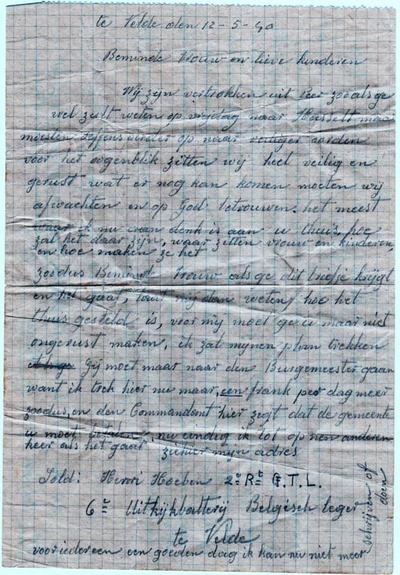 te Velde den 12-5-40
Beminde Vrouw en lieve kinderen
Wij zijn vertrokken uit eer zooals ge
wel zult weten op vrijdag naar Hoesselt maar
moesten seffens verder op naar veiliger oorden
voor het oogenblik zitten wij heel veilig en
gerust wat er nog kan komen moeten wij
afwachten en op God betrouwen. het meest
waar ik nu aan denk is aan u thuis, hoe
zal het daar zijn, waar zitten vrouw en kinderen,
en hoe maken ze het
zoodus Beminde Vrouw als ge dit briefje krijgt
en het gaat, laat mij dan weten hoe het
thuis gesteld is, voor mij moet ge u maar niet
ongerust maken, ik zal mijnen plan trekken
Gij moet maar naar den Burgemeester gaan
want ik trek hier nu maar een frank per dag meer
zoodus, en den Commandant hier zegt dat de gemeente
u moet betalen, nu eindig ik tot op nen anderen
keer als het gaat ziehier mijn adres
Sold: Henri Hoeben 2e Rt G.T.L.
6e Uitkijkbatterij Belgisch leger
te Velde
voor iedereen een goeden dag ik kan nu niet meer
schrijven of
doen